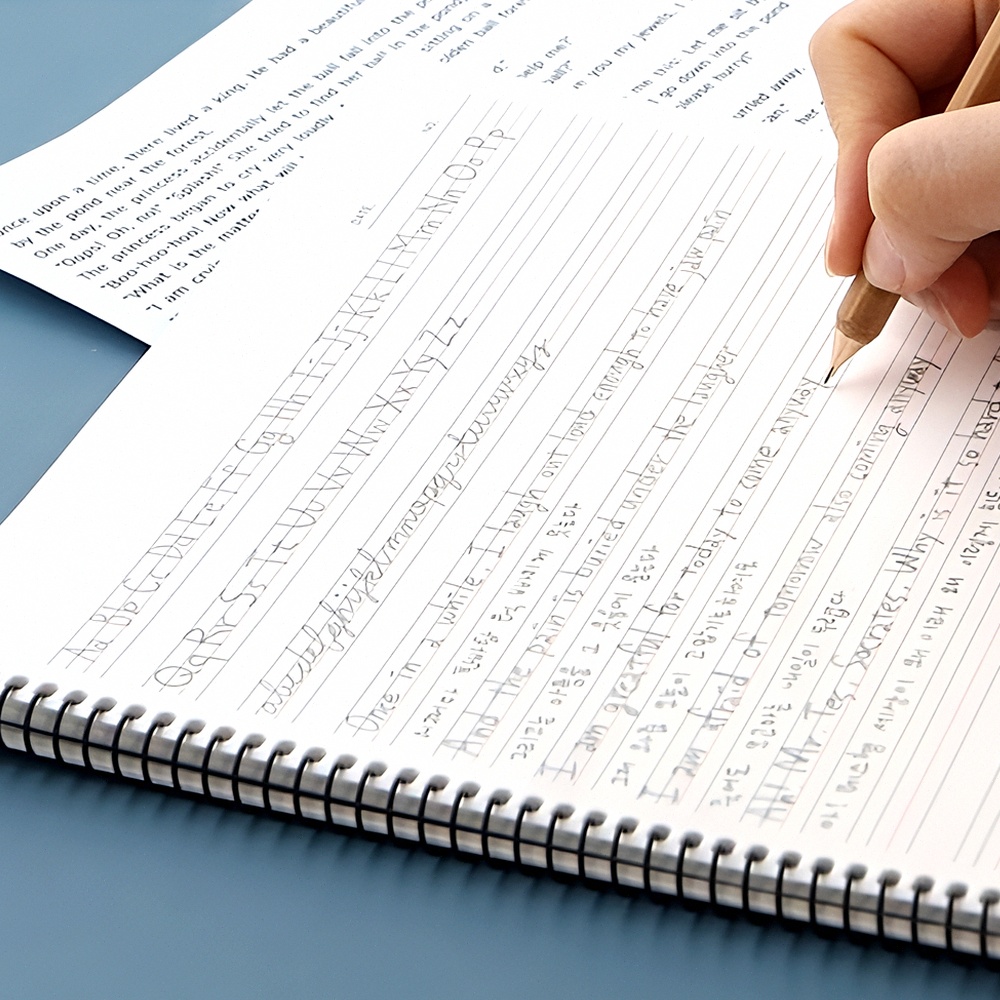 nce upon a time, there lived a king. He had a beautiful
by the pond near the forest.
One day, the princess accidentally let the ball fall into the
"Oops! Oh, no!" "Splash!" She tried to find her ball in the pond
The princess began to cry very loudly.
"Boo-hoo-hoo! Now what will
"What is the
"I am
sitting on a
ball
help me?
you my jewels. I
me this: Let me eat
I go down into the pond
please hurry!"
her
DATE
NO.
Aa Bb Cc Dd Ee Ff Gg Hh Ii Jj Kk Ll Mm Nn Oo Pp
Qq Rr Ss Tt Uu Vv Ww Xx Yy Zz
abcdefghijklmnopqrstuvwxyz
Once in a while, I laugh out loud enough to have jaw pain
어쩌다가 한바탕 턱 빠지게 웃는다
And the pain is buried under the laughter
그리고는 아픔을 그 웃음에 묻는다
I am greatful for today to come anyway
그저 와준 오늘이 고맙기는 하여도
I am afraid of tomorrow also coming anyway
죽어도 오고마는 또 내일이 두렵다
Ah! Mr. Tes, Socrates. Why is it so hard
아! 테스형 세상이 왜 이래 왜 이렇게